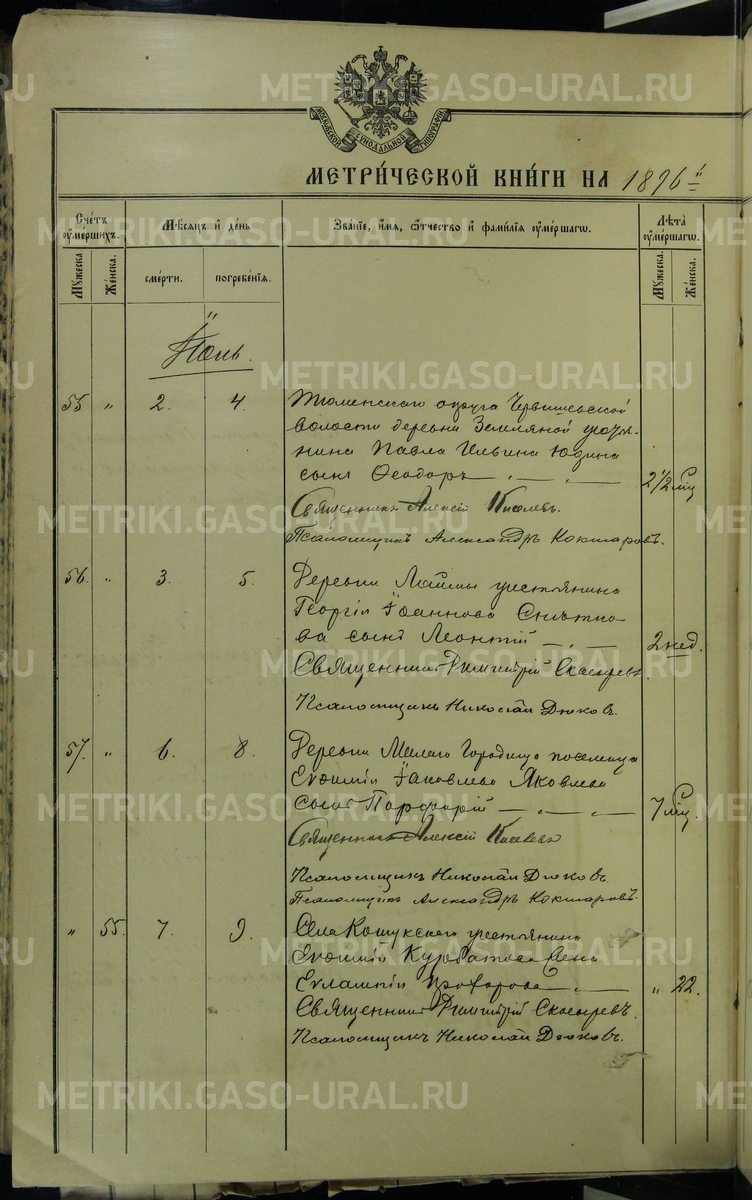 МОСКОВСКОЙ СИНОДАЛЬНОЙ ТИПОГРАФІИ
МЕТРИ́ЧЕСКОЙ КНИ́ГИ НА 1896 й
Сче́тъ ѹме́ршихъ.
Мѣ́сѧцъ и҆ де́нь
Зва́нїе, и҆́мѧ, ѻ҆́тчество и҆ фами́лїѧ ѹме́ршагѡ.
Лѣ́та ѹме́ршагѡ.
Мꙋ́жеска.
Же́нска.
сме́рти.
погребе́нїѧ.
Мꙋ́жеска.
Же́нска.
Іюль.
55 " 2. 4. Тюменскаго округа Червишевской
волости деревни Земляной крестья-
нина Павла Ильина Юдина
сынъ Ѳеодоръ — " — " — 2 1/2 мѣс
Священникъ Алексій Киселевъ.
Псаломщикъ Александръ Кокшаровъ.
56. " 3. 5. Деревни крестьянина
Георгія Іоаннова
ва сынъ Леонтій — " — 2 нед.
Священникъ Димитрій Скосыревъ.
Псаломщикъ Николай Дюковъ.
57. " 6. 8. Деревни Малаго Городища поселенца
Евѳимія Іаковлева Яковлева
сынъ Порфирій — " — " — 7 мѣс
Священникъ Алексій Киселевъ
Псаломщикъ Николай Дюковъ.
Псаломщикъ Александръ Кокшаровъ.
" 55. 7. 9. Села Кошукскаго крестьянина
Евѳимія Курбатова жена
Евлампія Прохорова — " — " 22.
Священникъ Димитрій Скосыревъ.
Псаломщикъ Николай Дюковъ.
METRIKI.GASO-URAL.RU